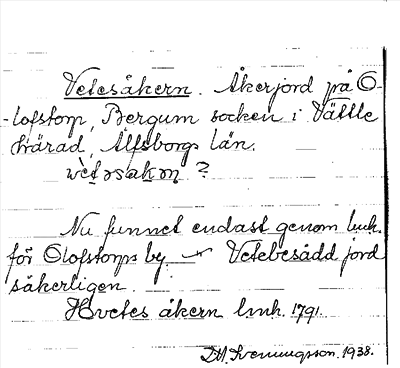 Vetesåkern. Åkerjord på O-
-lofstorp, Bergum socken i Vättle
härad, Älfsborgs län.
Nu funnet endast genom lmh.
för Olofstorps by. Vetebesådd jord
säkerligen.
Hvetes åkern lmh. 1791.
D.M. Svenungsson. 1938.